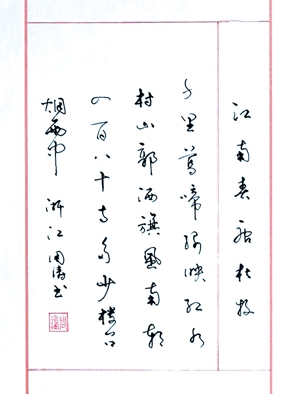 江南春 唐 杜牧
千里莺啼绿映红水
村山郭酒旗风南朝
四百八十寺多少楼台
烟雨中 浙江周涛书